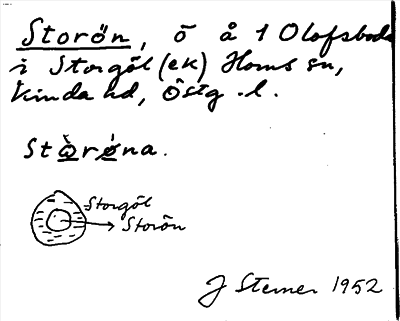 Storön, ö å 1 Olofsboda
i Storgöl (ek) Horns sn,
Kinda hd, Östg.l.
Stòrøna.
Storgöl
Storön
J Sterner 1952